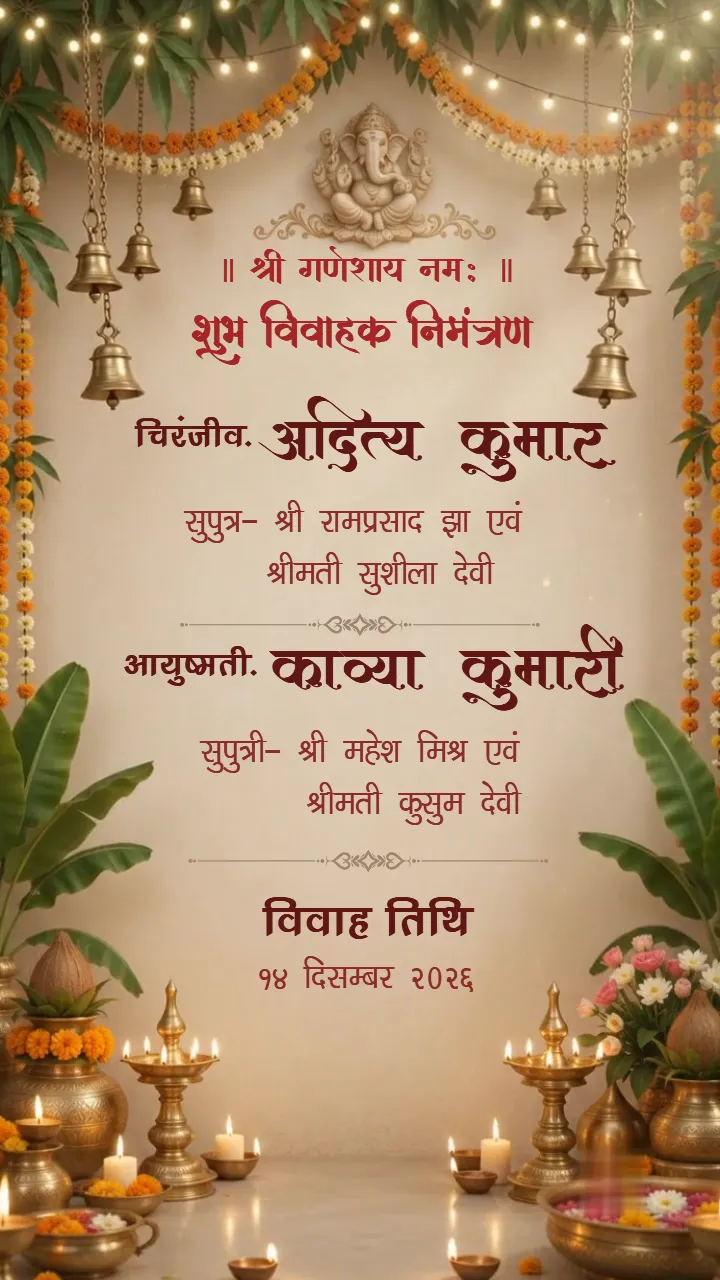 ॥ श्री गणेशाय नमः ॥
शुभ विवाहक निमंत्रण
चिरंजीव. अदित्य कुमार
सुपुत्र- श्री रामप्रसाद झा एवं
श्रीमती सुशीला देवी
आयुष्मती. काव्या कुमारी
सुपुत्री- श्री महेश मिश्र एवं
श्रीमती कुसुम देवी
विवाह तिथि
१४ दिसम्बर २०२६